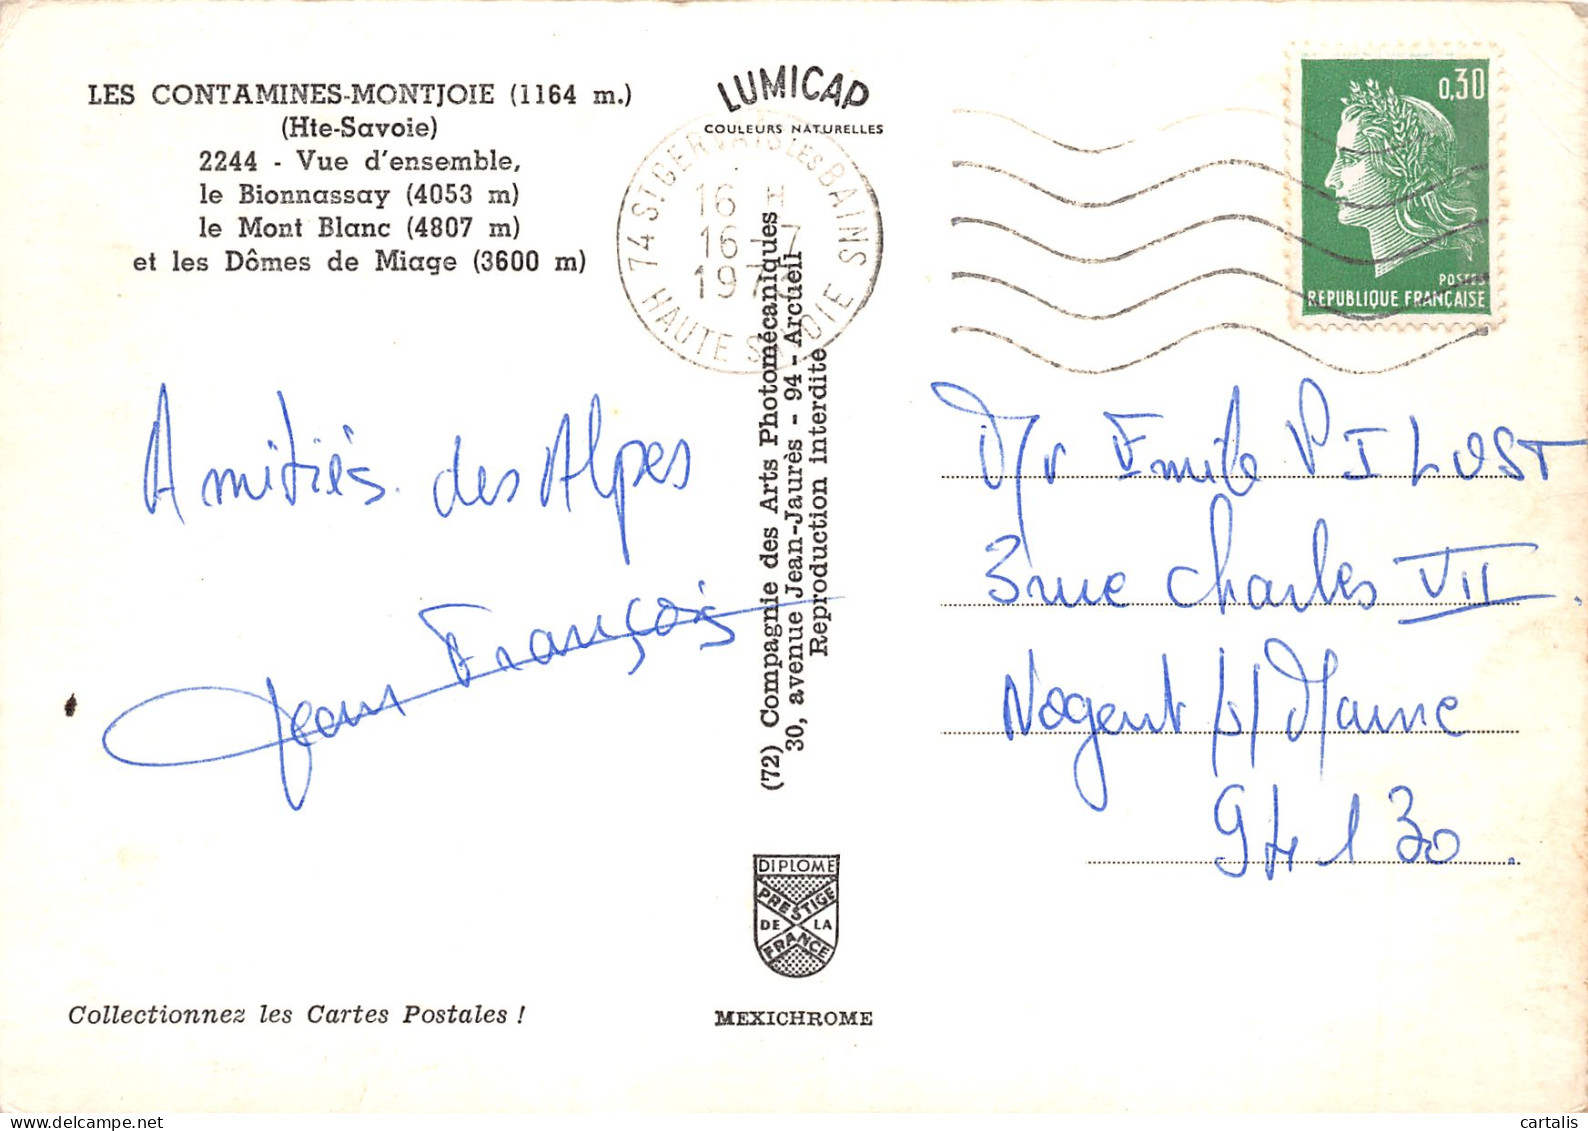 LES CONTAMINES-MONTJOIE (1164 m.)
(Hte-Savoie)
2244 - Vue d'ensemble,
le Bionnassay (4053 m)
le Mont Blanc (4807 m)
et les Dômes de Miage (3600 m)
LUMICAP
COULEURS NATURELLES
74 ST GERVAIS LES BAINS
16 H
16 - 7
HAUTE SAVOIE
0,30
POSTES
REPUBLIQUE FRANÇAISE
Amitiés des Alpes
Jean François
(72) Compagnie des Arts Photomécaniques
30, avenue Jean-Jaurès - 94 - Arcueil
Reproduction interdite
Mr Emile PILOST
3 rue Charles VII.
Nogent s/ Marne
94130.
DIPLOME
PRESTIGE
DE LA
FRANCE
MEXICHROME
Collectionnez les Cartes Postales !
cartalis